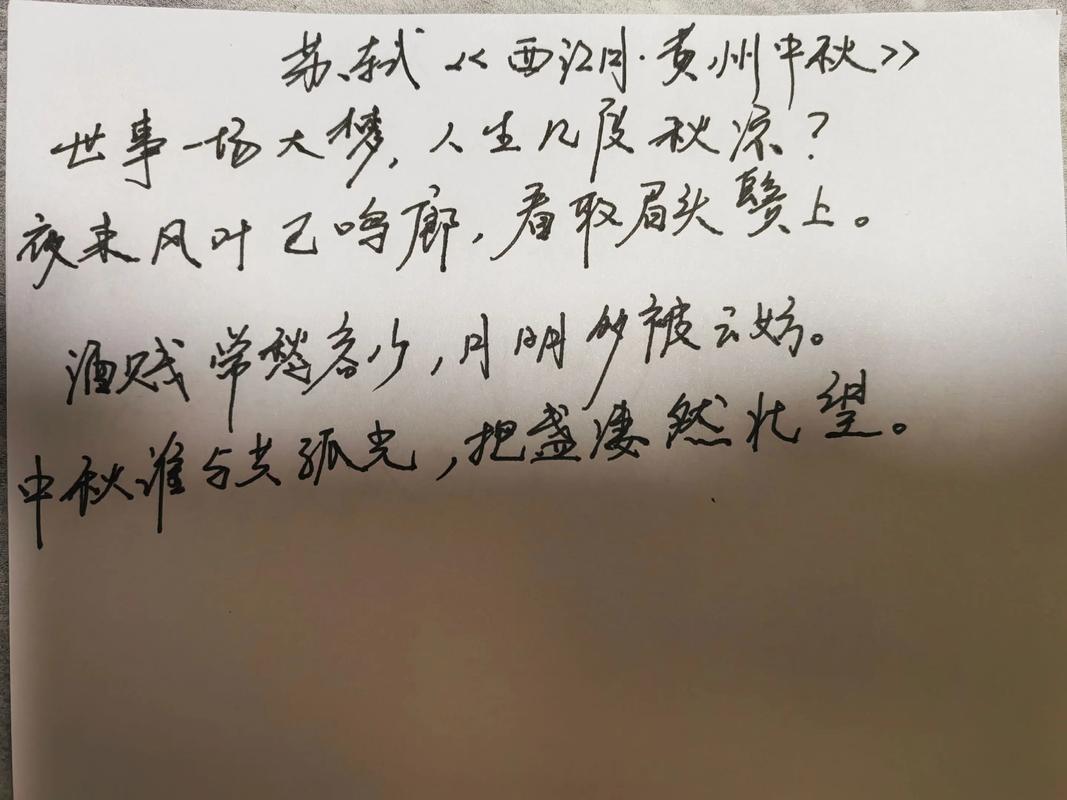 苏轼《西江月·黄州中秋》
世事一场大梦,人生几度秋凉?
夜来风叶已鸣廊,看取眉头鬓上。
酒贱常愁客少,月明多被云妨。
中秋谁与共孤光,把盏凄然北望。